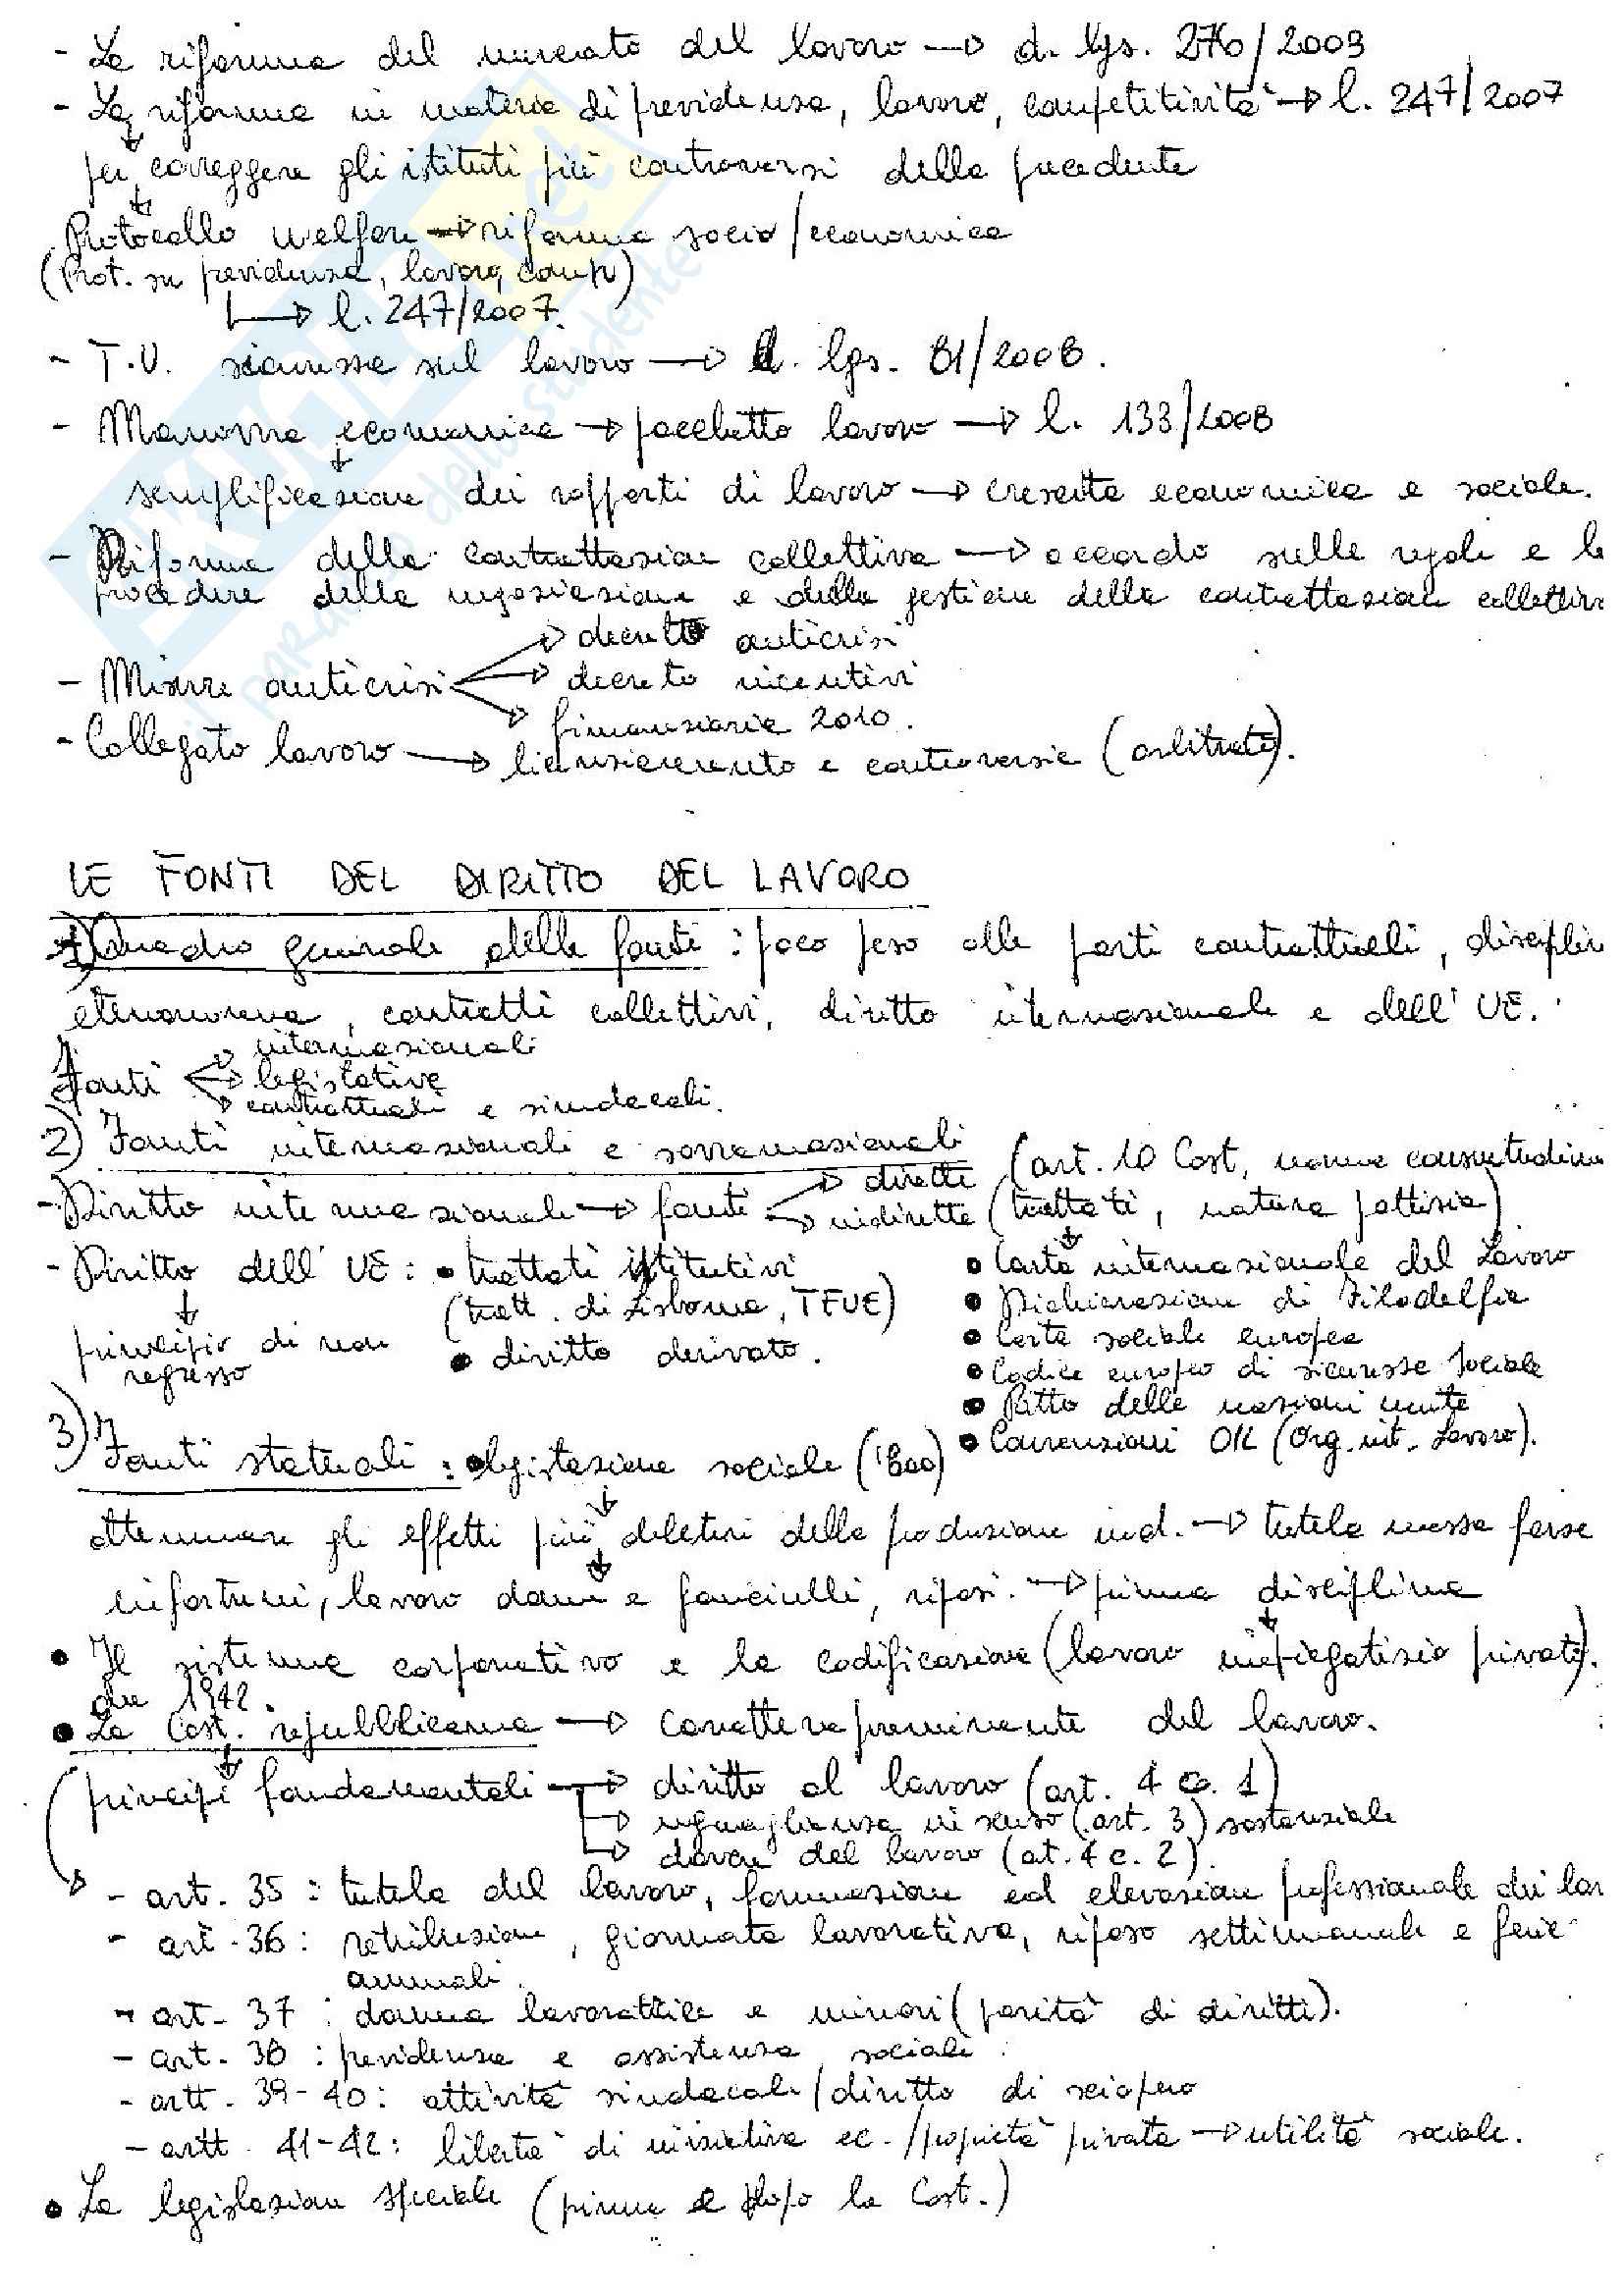 - La riforma del mercato del lavoro → d. lgs. 276/2003
- La riforma in materia di previdenza, lavoro, competitività → l. 247/2007
↓
per correggere gli istituti più controversi della precedente
↓
Protocollo welfare → riforma socio/economica
(Prot. su previdenza, lavoro, comp)
↳ l. 247/2007.
- T.U. sicurezza sul lavoro → d. lgs. 81/2008.
- Manovra economica → pacchetto lavoro → l. 133/2008
↓
semplificazione dei rapporti di lavoro → crescita economica e sociale.
- Riforma della contrattazione collettiva → accordo sulle regole e le
procedure della negoziazione e della gestione della contrattazione collettiva
→ decreto anticrisi
- Misure anticrisi → decreto incentivi
→ finanziaria 2010.
- Collegato lavoro → licenziamento e controversie (arbitrato).
LE FONTI DEL DIRITTO DEL LAVORO
1) Quadro generale delle fonti : poco peso alle parti contrattuali, disciplin
eteronoma, contratti collettivi, diritto internazionale e dell' UE.
→ internazionali
Fonti → legislative
→ contrattuali e sindacali.
2) Fonti internazionali e sovranazionali
- Diritto internazionale → fonti → dirette (art. 10 Cost, norme consuetudina
→ indirette (trattati, natura pattizia)
↓
• Carta internazionale del Lavoro
• Dichiarazione di Filadelfia
• Carta sociale europea
• Codice europeo di sicurezza sociale
• Patto delle nazioni unite
• Convenzioni OIL (Org. int. Lavoro).
- Diritto dell' UE : • trattati istitutivi
(tratt. di Lisbona, TFUE)
• diritto derivato.
↓
principio di non
regresso
3) Fonti statuali : • legislazione sociale ('800)
↓
attenuare gli effetti più deleteri della produzione ind. → tutela mezze forze
↓
infortuni, lavoro donne e fanciulli, riposi. → prima disciplina
↓
• Il sistema corporativo e la codificazione (lavoro impiegatizio privato).
del 1942.
• La Cost. repubblicana → carattere preminente del lavoro.
↓
principi fondamentali → diritto al lavoro (art. 4 c. 1)
→ uguaglianza in senso (art. 3) sostanziale
→ dovere del lavoro (at. 4 c. 2).
→ - art. 35 : tutela del lavoro, formazione ed elevazione professionale dei lav
- art. 36 : retribuzione, giornata lavorativa, riposo settimanale e ferie
annuali.
- art. 37 : donna lavoratrice e minori (parità di diritti).
- art. 38 : previdenza e assistenza sociale.
- artt. 39-40 : attività sindacale/diritto di sciopero
- artt. 41-42 : libertà di iniziativa ec./proprietà privata → utilità sociale.
• La legislazione speciale (prima e dopo la Cost.)